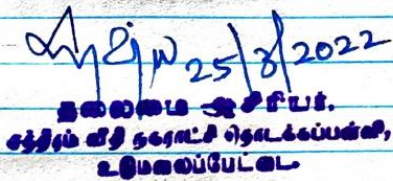 25/8/2022
தலைமை ஆசிரியர்.
சத்திரம் வீதி நகராட்சி தொடக்கப்பள்ளி,
உடுமலைப்பேட்டை.